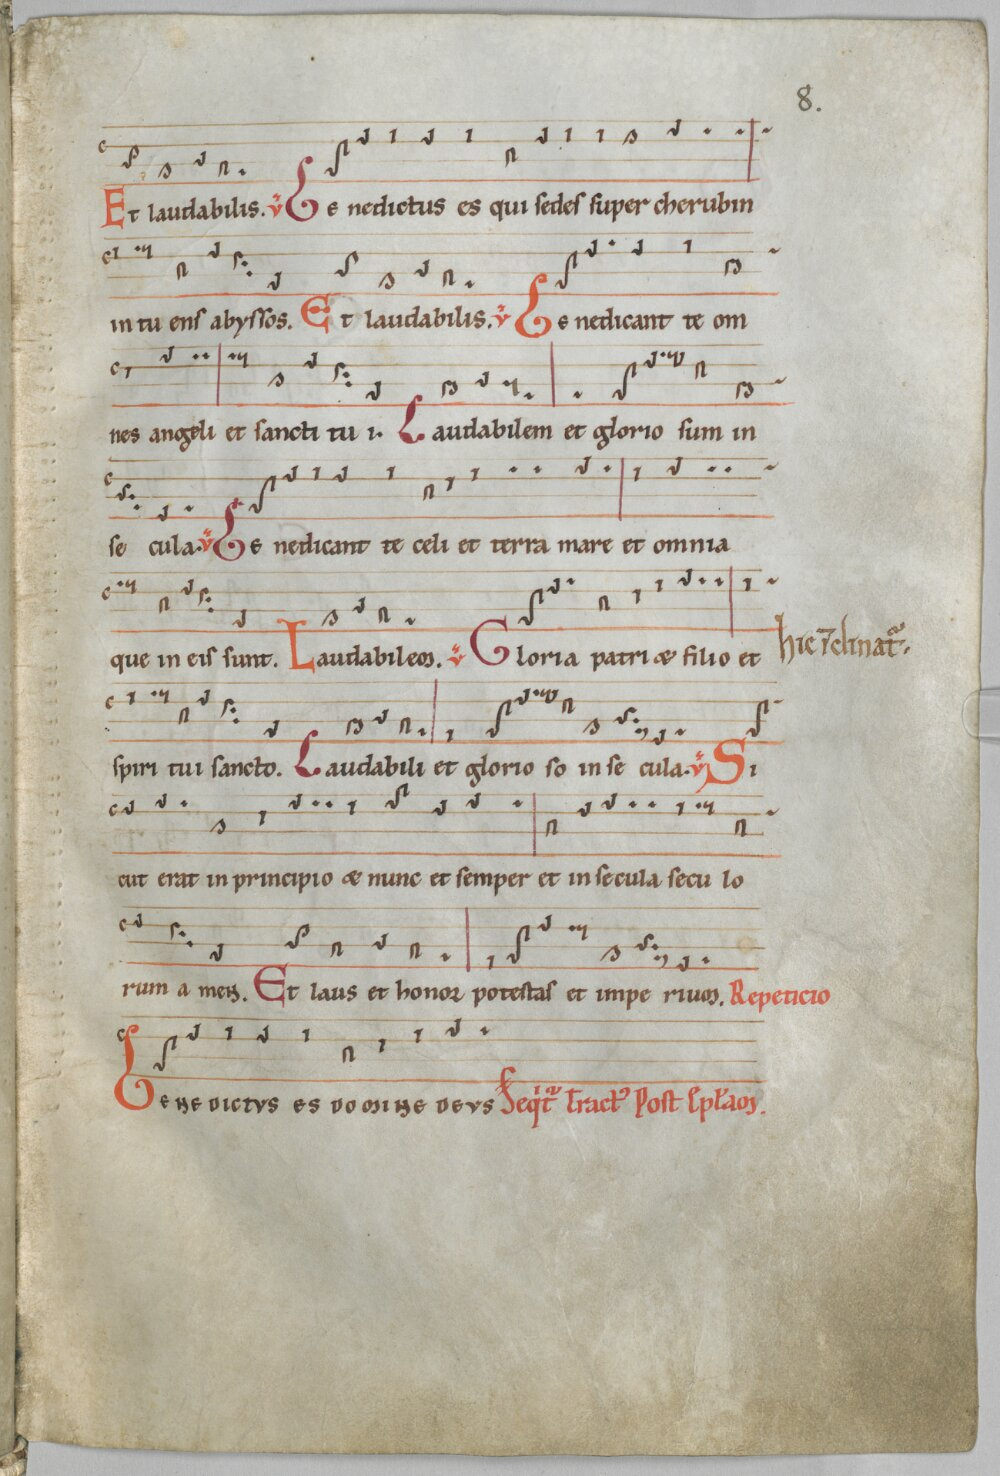 8.
Et laudabilis. ℣ Be nedictus es qui sedes super cherubin
in tu ens abyssos. Et laudabilis. ℣ Be nedicant te om
nes angeli et sancti tu i. Laudabilem et glorio sum in
se cula. ℣ Be nedicant te celi et terra mare et omnia
que in eis sunt. Laudabilem. ℣ Gloria patri & filio et
hic ⁊clinat᷑.
spiri tui sancto. Laudabili et glorio so in se cula. ℣ Si
cut erat in principio & nunc et semper et in secula secu lo
rum a men. Et laus et honor potestas et impe rium. Repeticio
Benedictus es domine deus Seqᷓt᷑ Tractꝰ Post Ep̄lam.